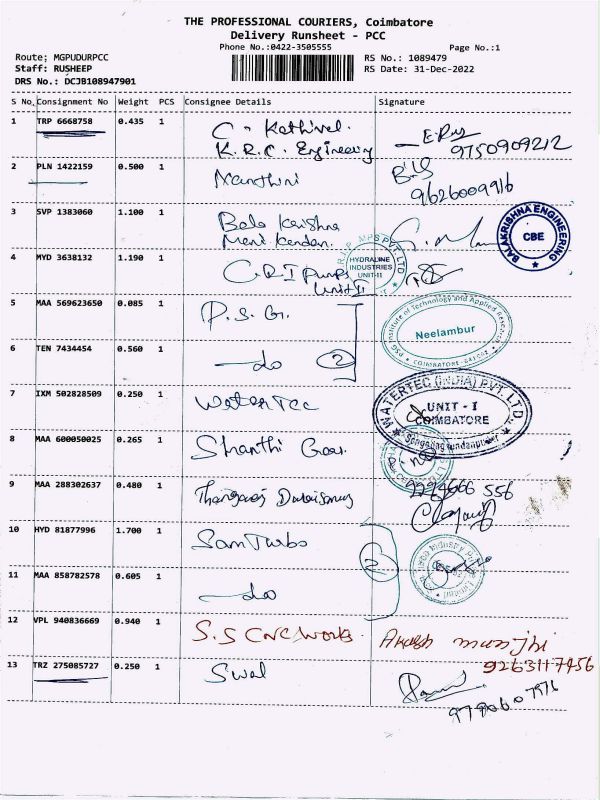 THE PROFESSIONAL COURIERS, Coimbatore
Delivery Runsheet - PCC
Phone No.:0422-3505555
Page No.:1
Route; MGPUDURPCC
Staff: RUSHEEP
DRS No.: DCJB108947901
RS No.: 1089479
RS Date: 31-Dec-2022
S No Consignment No Weight PCS Consignee Details Signature
1 TRP 6668758 0.435 1 C. Kathivel.
K.R.C. Engineering
9750909212
2 PLN 1422159 0.500 1 Nanthini
9626009916
3 SVP 1383060 1.100 1 Bala Krishna
Mani Kandan.
BALAKRISHNA ENGINEERING
CBE
4 MYD 3638132 1.190 1 C.R.I Pumps
Unit II
HYDRALINE
INDUSTRIES
UNIT-II
5 MAA 569623650 0.085 1 P.S.G.
PSG Institute of Technology and Applied Research
Neelambur
COIMBATORE
6 TEN 7434454 0.560 1 do 2
7 IXM 502828509 0.250 1 Watertec
WATERTEC (INDIA) PVT. LTD
UNIT - I
COIMBATORE
8 MAA 600050025 0.265 1 Shanthi Gear.
9 MAA 288302637 0.480 1 Thangaraj Duraisamy
556
10 HYD 81877996 1.700 1 Sam Turbo
2
11 MAA 858782578 0.605 1 do
12 VPL 940836669 0.940 1 S.S CNC Works.
Akash
9263117456
13 TRZ 275085727 0.250 1 Swal